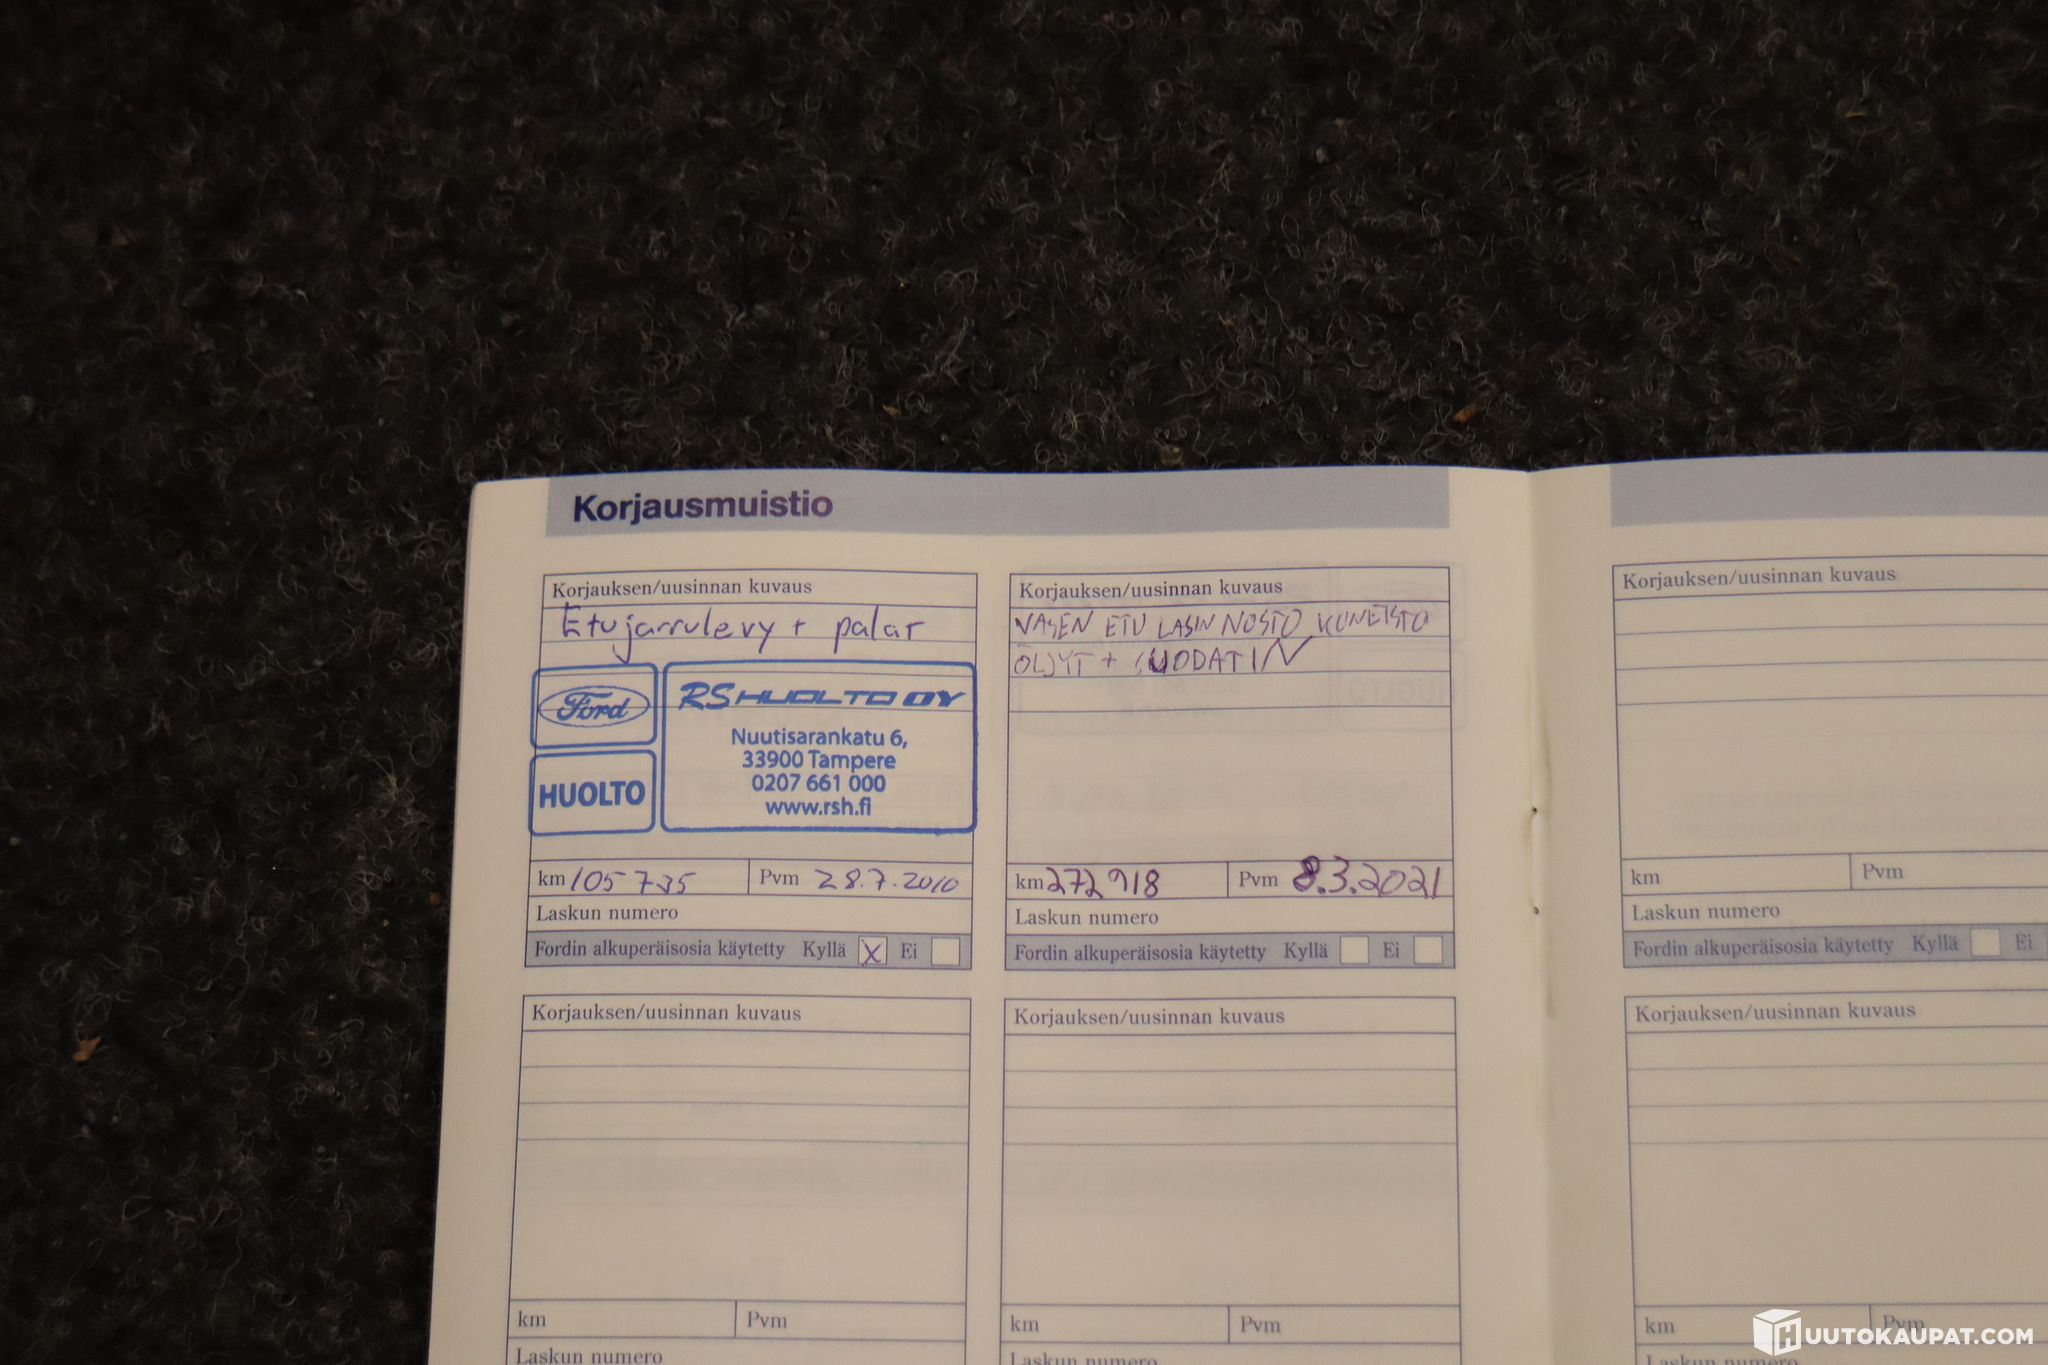 Korjausmuistio
Korjauksen/uusinnan kuvaus
Etujarrulevy + palat
Ford
HUOLTO
RS HUOLTO OY
Nuutisarankatu 6,
33900 Tampere
0207 661 000
www.rsh.fi
km 105 735 Pvm 28.7.2010
Laskun numero
Fordin alkuperäisosia käytetty Kyllä X Ei
Korjauksen/uusinnan kuvaus
VASEN ETU LASIN NOSTO KONEISTO
ÖLJYT + SUODATIN
km 272 918 Pvm 8.3.2021
Laskun numero
Fordin alkuperäisosia käytetty Kyllä Ei
Korjauksen/uusinnan kuvaus
km Pvm
Laskun numero
Korjauksen/uusinnan kuvaus
km Pvm
Laskun numero
Korjauksen/uusinnan kuvaus
km Pvm
Laskun numero
Fordin alkuperäisosia käytetty Kyllä Ei
Korjauksen/uusinnan kuvaus
km Pvm
Laskun numero
HUUTOKAUPAT.COM